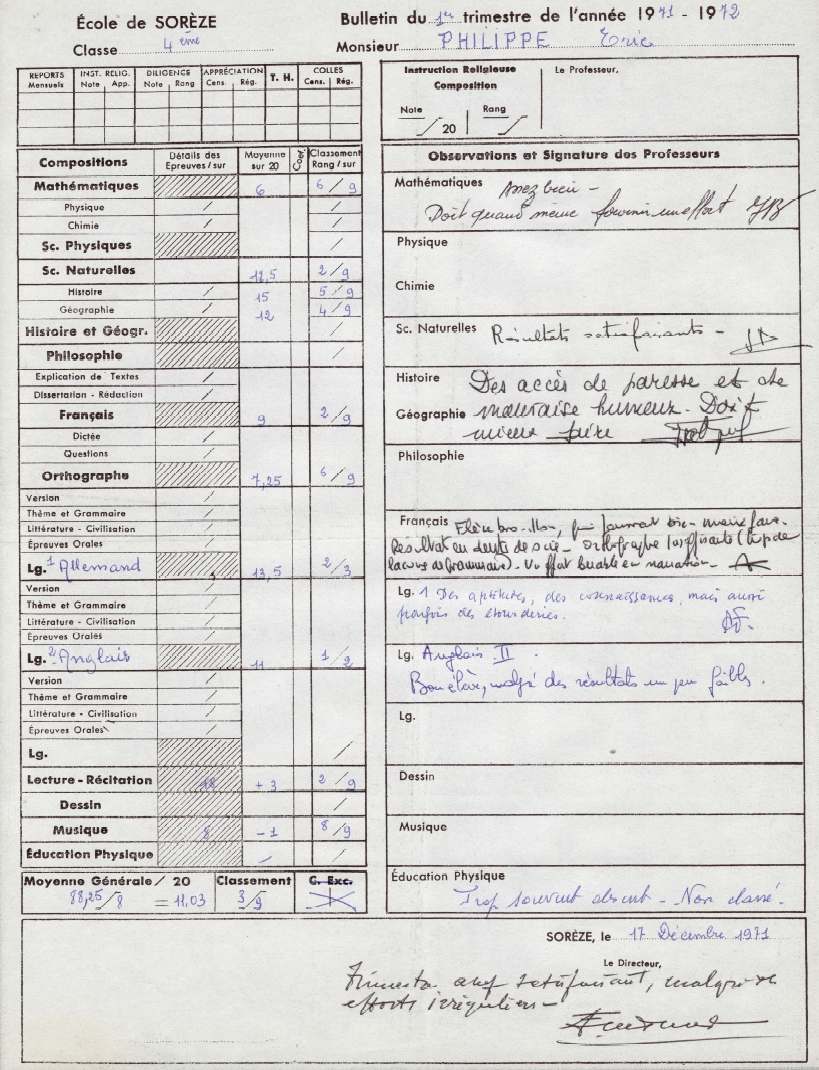 École de SORÈZE
Bulletin du 1er trimestre de l'année 1971 - 1972
Classe 4ème
Monsieur PHILIPPE Eric
REPORTS Mensuels
INST. RELIG. Note App.
DILIGENCE Note Rang
APPRÉCIATION Cens. Rég.
T. H.
COLLES Cens. Rég.
Instruction Religieuse
Composition
Note /20 Rang /
Le Professeur,
Compositions Détails des Epreuves / sur Moyenne sur 20 Coef. Classement Rang / sur
Mathématiques 6 6/9
Physique / /
Chimie / /
Sc. Physiques /
Sc. Naturelles 12,5 2/9
Histoire / 15 5/9
Géographie / 12 4/9
Histoire et Géogr. /
Philosophie /
Explication de Textes /
Dissertation - Rédaction /
Français 9 2/9
Dictée /
Questions /
Orthographe 7,25 6/9
Version /
Thème et Grammaire /
Littérature - Civilisation /
Épreuves Orales /
Lg. 1 Allemand 13,5 2/3
Version /
Thème et Grammaire /
Littérature - Civilisation /
Épreuves Orales /
Lg. 2 Anglais 11 1/2
Version /
Thème et Grammaire /
Littérature - Civilisation /
Épreuves Orales /
Lg. /
Lecture - Récitation 18 + 3 2/9
Dessin /
Musique 8 - 1 8/9
Éducation Physique / /
Moyenne Générale / 20 Classement C. Exc.
88,25/8 = 11,03 3/9
Observations et Signature des Professeurs
Mathématiques Assez bien -
Doit quand même fournir un effort
Physique
Chimie
Sc. Naturelles Résultats satisfaisants -
Histoire Des accès de paresse et de
Géographie mauvaise humeur. Doit
mieux faire
Philosophie
Français Elève brouillon, qui pourrait bien mieux faire.
Résultat en dents de scie - Orthographe insuffisante (trop de
lacunes de Grammaire). Un effort louable en narration -
Lg. 1 Des aptitudes, des connaissances, mais aussi
parfois des étourderies.
Lg. Anglais II.
Bon élève, malgré des résultats un peu faibles.
Lg.
Dessin
Musique
Éducation Physique
Trop souvent absent - Non classé.
SORÈZE, le 17 Décembre 1971
Le Directeur,
Trimestre assez satisfaisant, malgré des
efforts irréguliers -